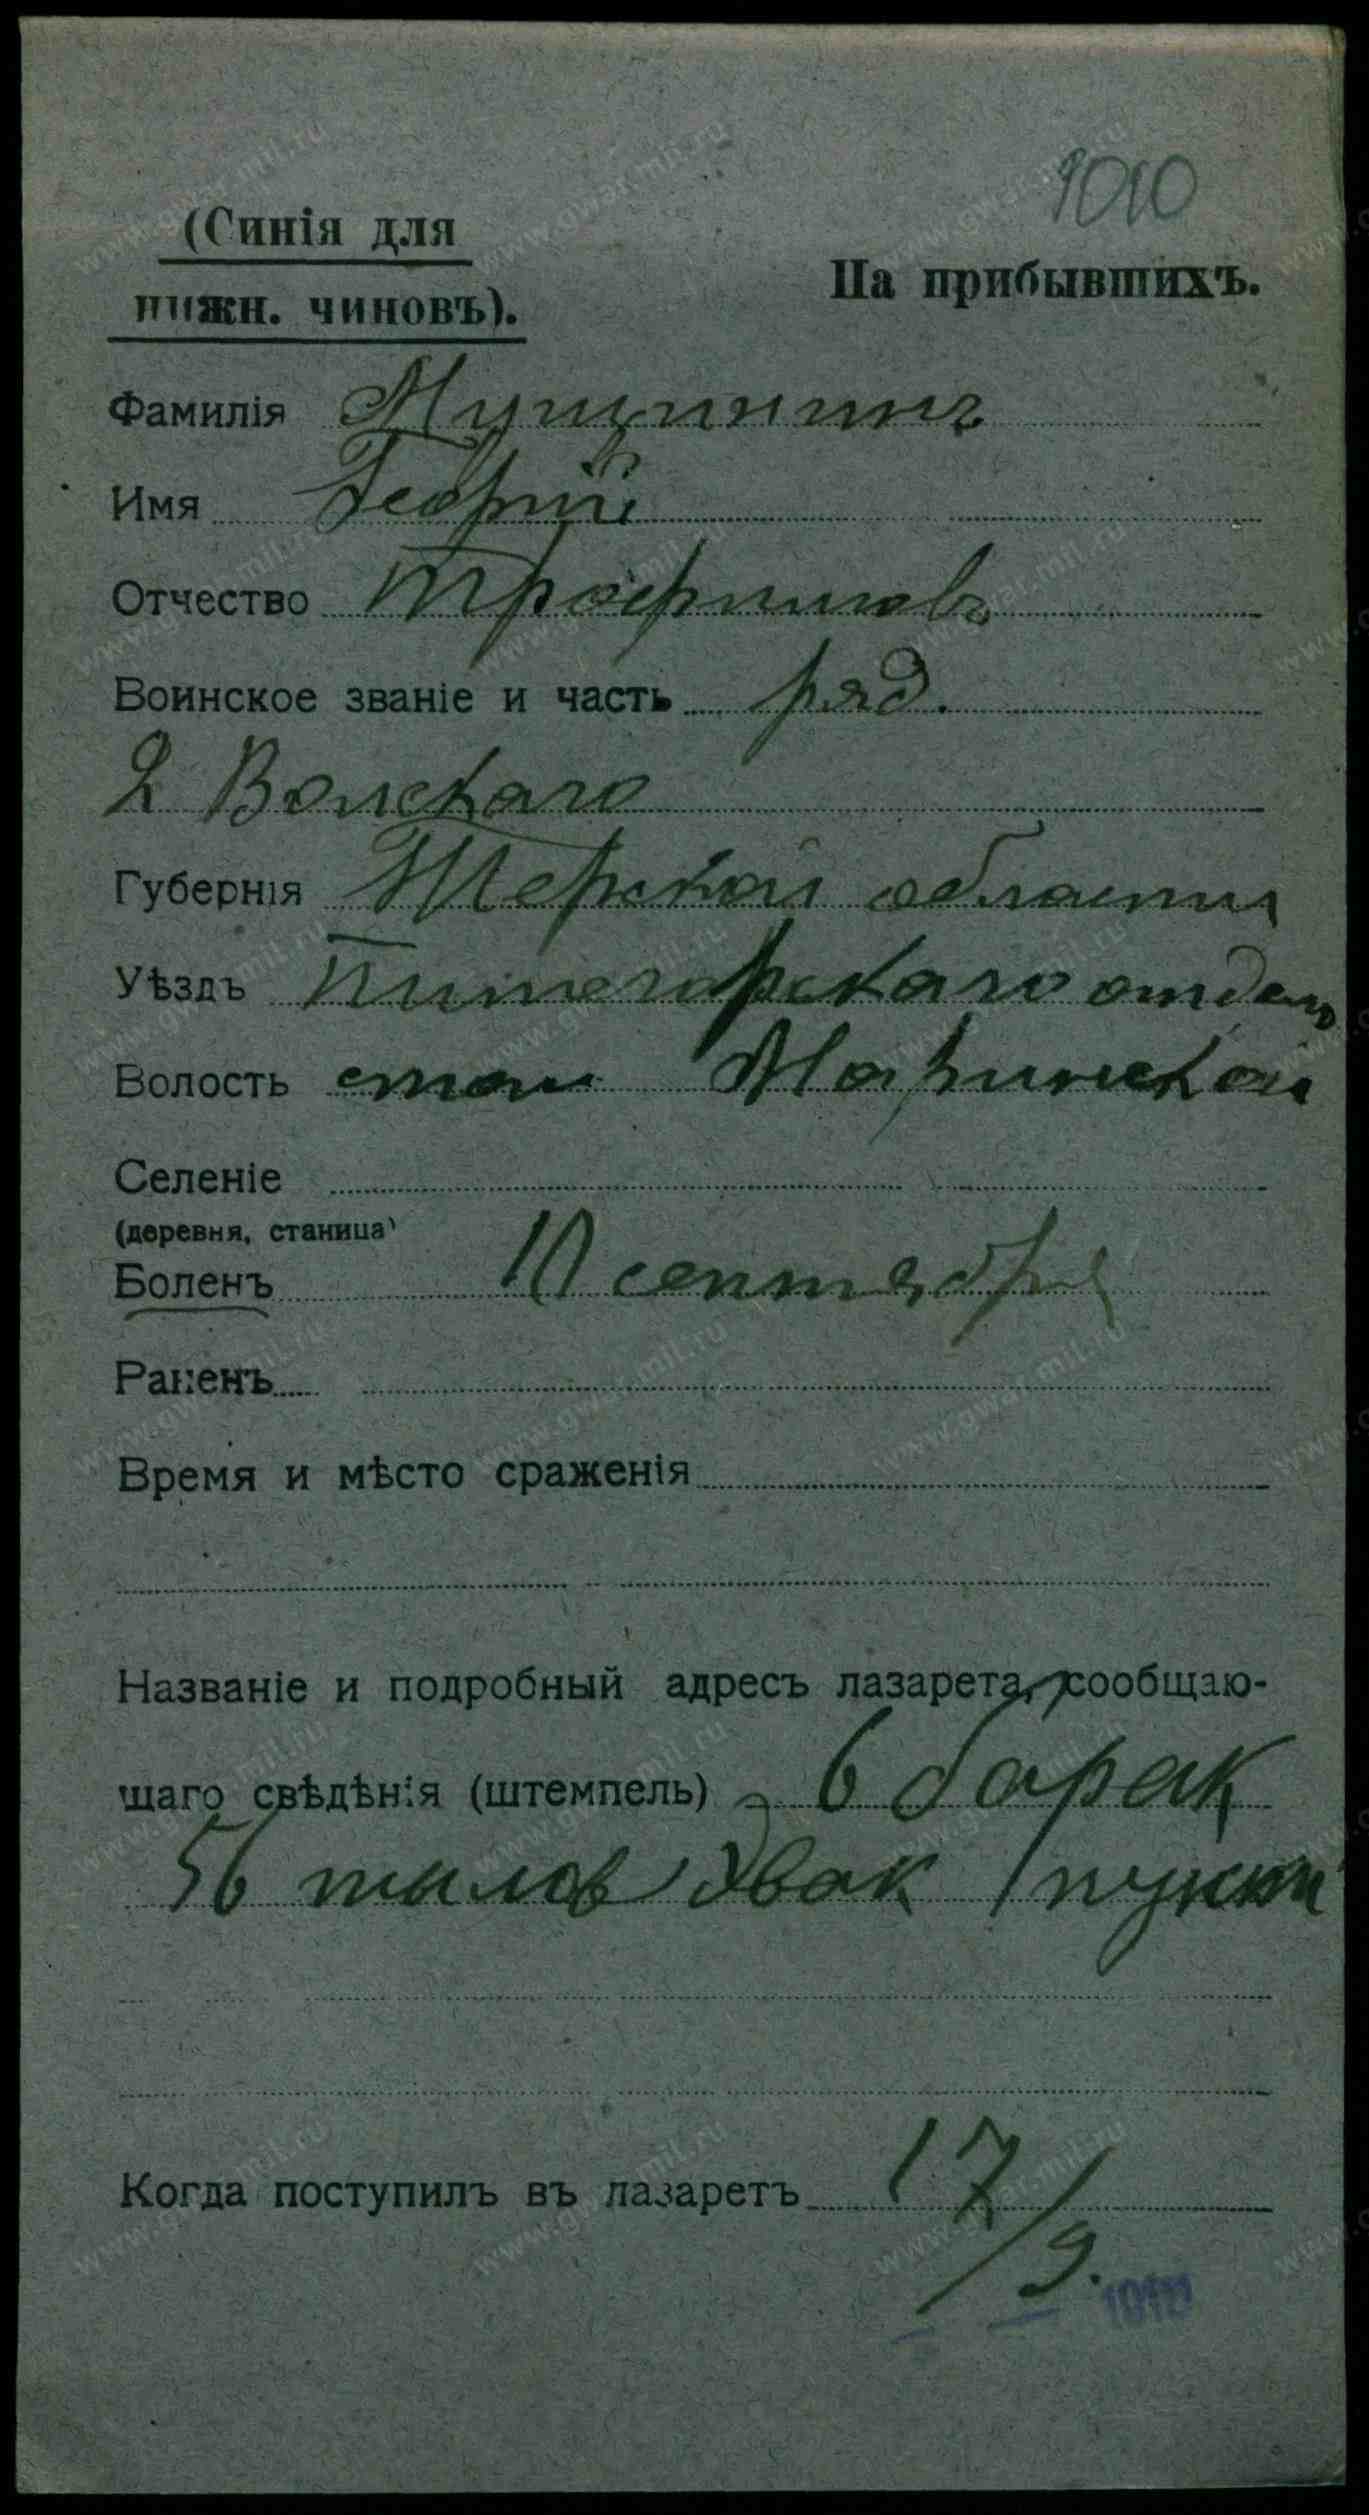 1010
(Синія для
нижн. чиновъ).
На прибывшихъ.
Фамилія Мущинин
Имя Георгій
Отчество Трофимовъ
Воинское званіе и часть ряд.
2 Волскаго
Губернія Терской области
Уѣздъ Питегорскаго отдела
Волость стан Маринской
Селеніе
(деревня, станица)
Боленъ 10 сентября
Раненъ
Время и мѣсто сраженія
Названіе и подробный адресъ лазарета, сообщаю-
щаго свѣдѣнія (штемпель) 6 барак
56 тылов эвак пункт
Когда поступилъ въ лазаретъ 17/9.